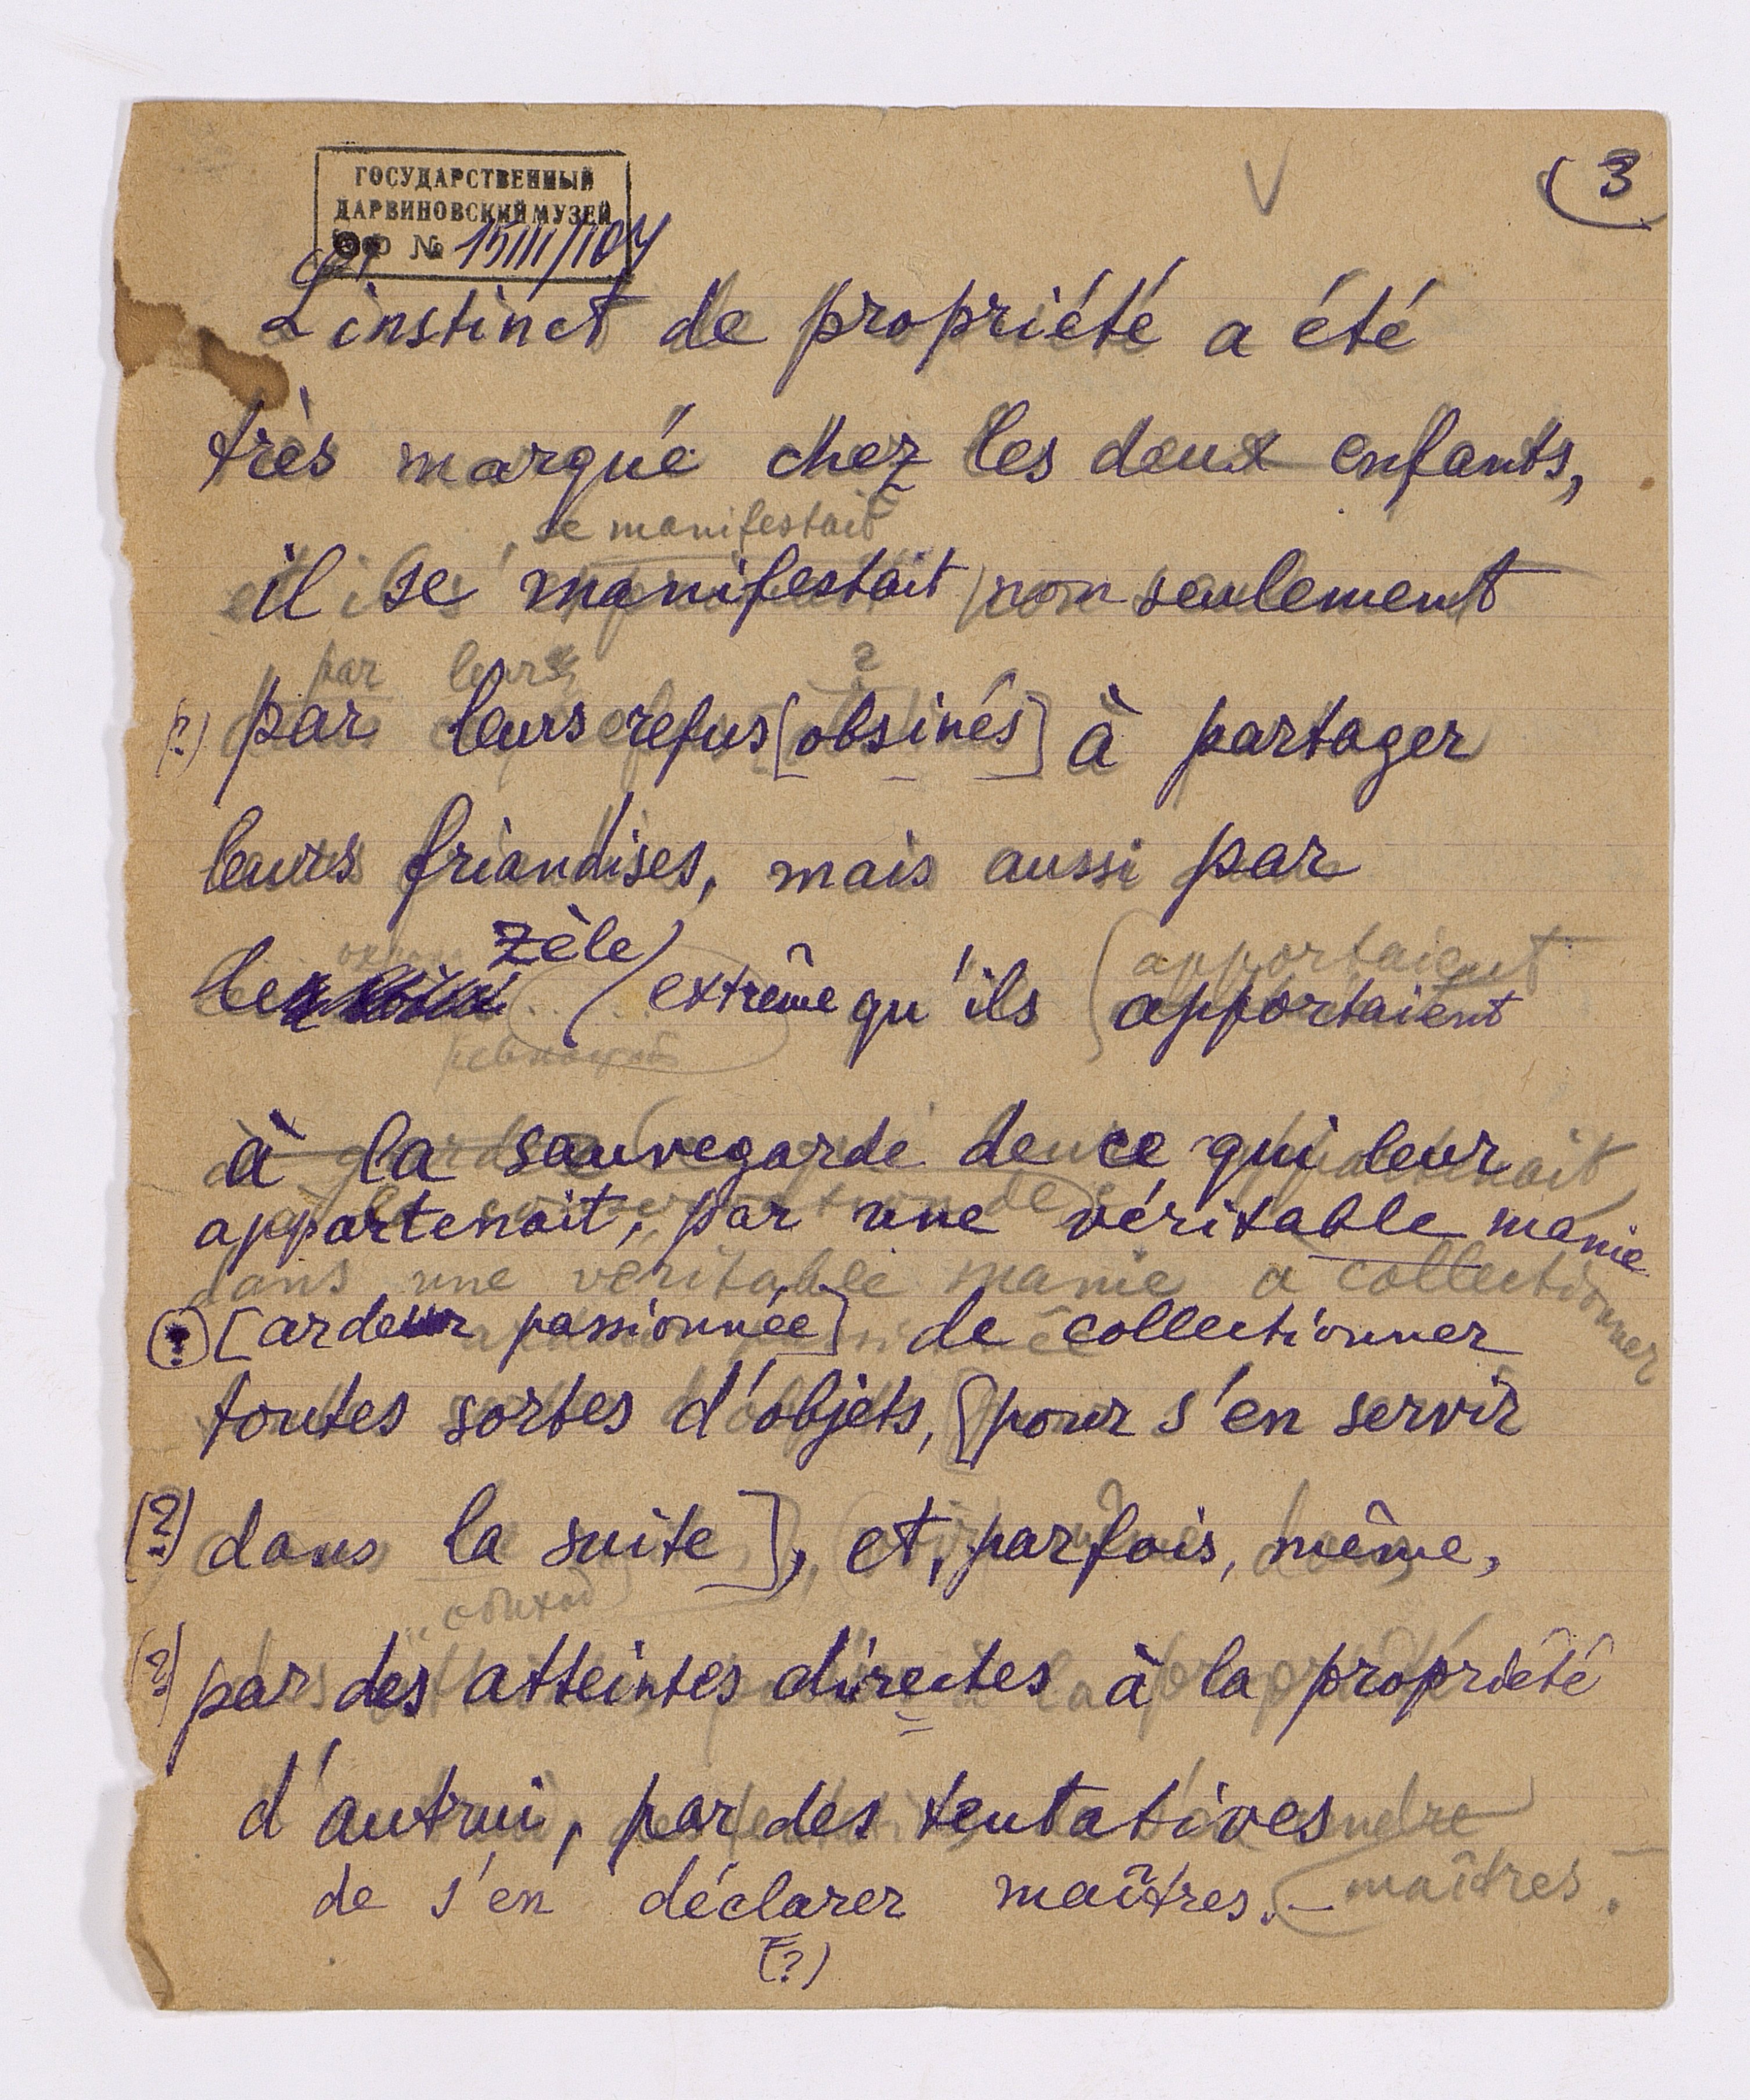 ГОСУДАРСТВЕННЫЙ
ДАРВИНОВСКИЙ МУЗЕЙ
№ 15111/104
V
3
L'instinct de propriété a été
très marqué chez les deux enfants,
se manifestait
il se manifestait non seulement
par leurs ?
(?) par leurs refus [obsinés] à partager
leurs friandises, mais aussi par
zèle
le (extrême qu'ils apportaient
apportaient
à la sauvegarde de ce qui leur
appartenait, par une véritable manie
dans une véritable manie à collectionner
(?) [ardeur passionnée] de collectionner
toutes sortes d'objets, [pour s'en servir
(?) dans la suite], et, parfois, même,
обиход
(?) par des atteintes directes à la propriété
d'autrui, par des tentatives
de s'en déclarer maîtres. – maîtres.
(?)